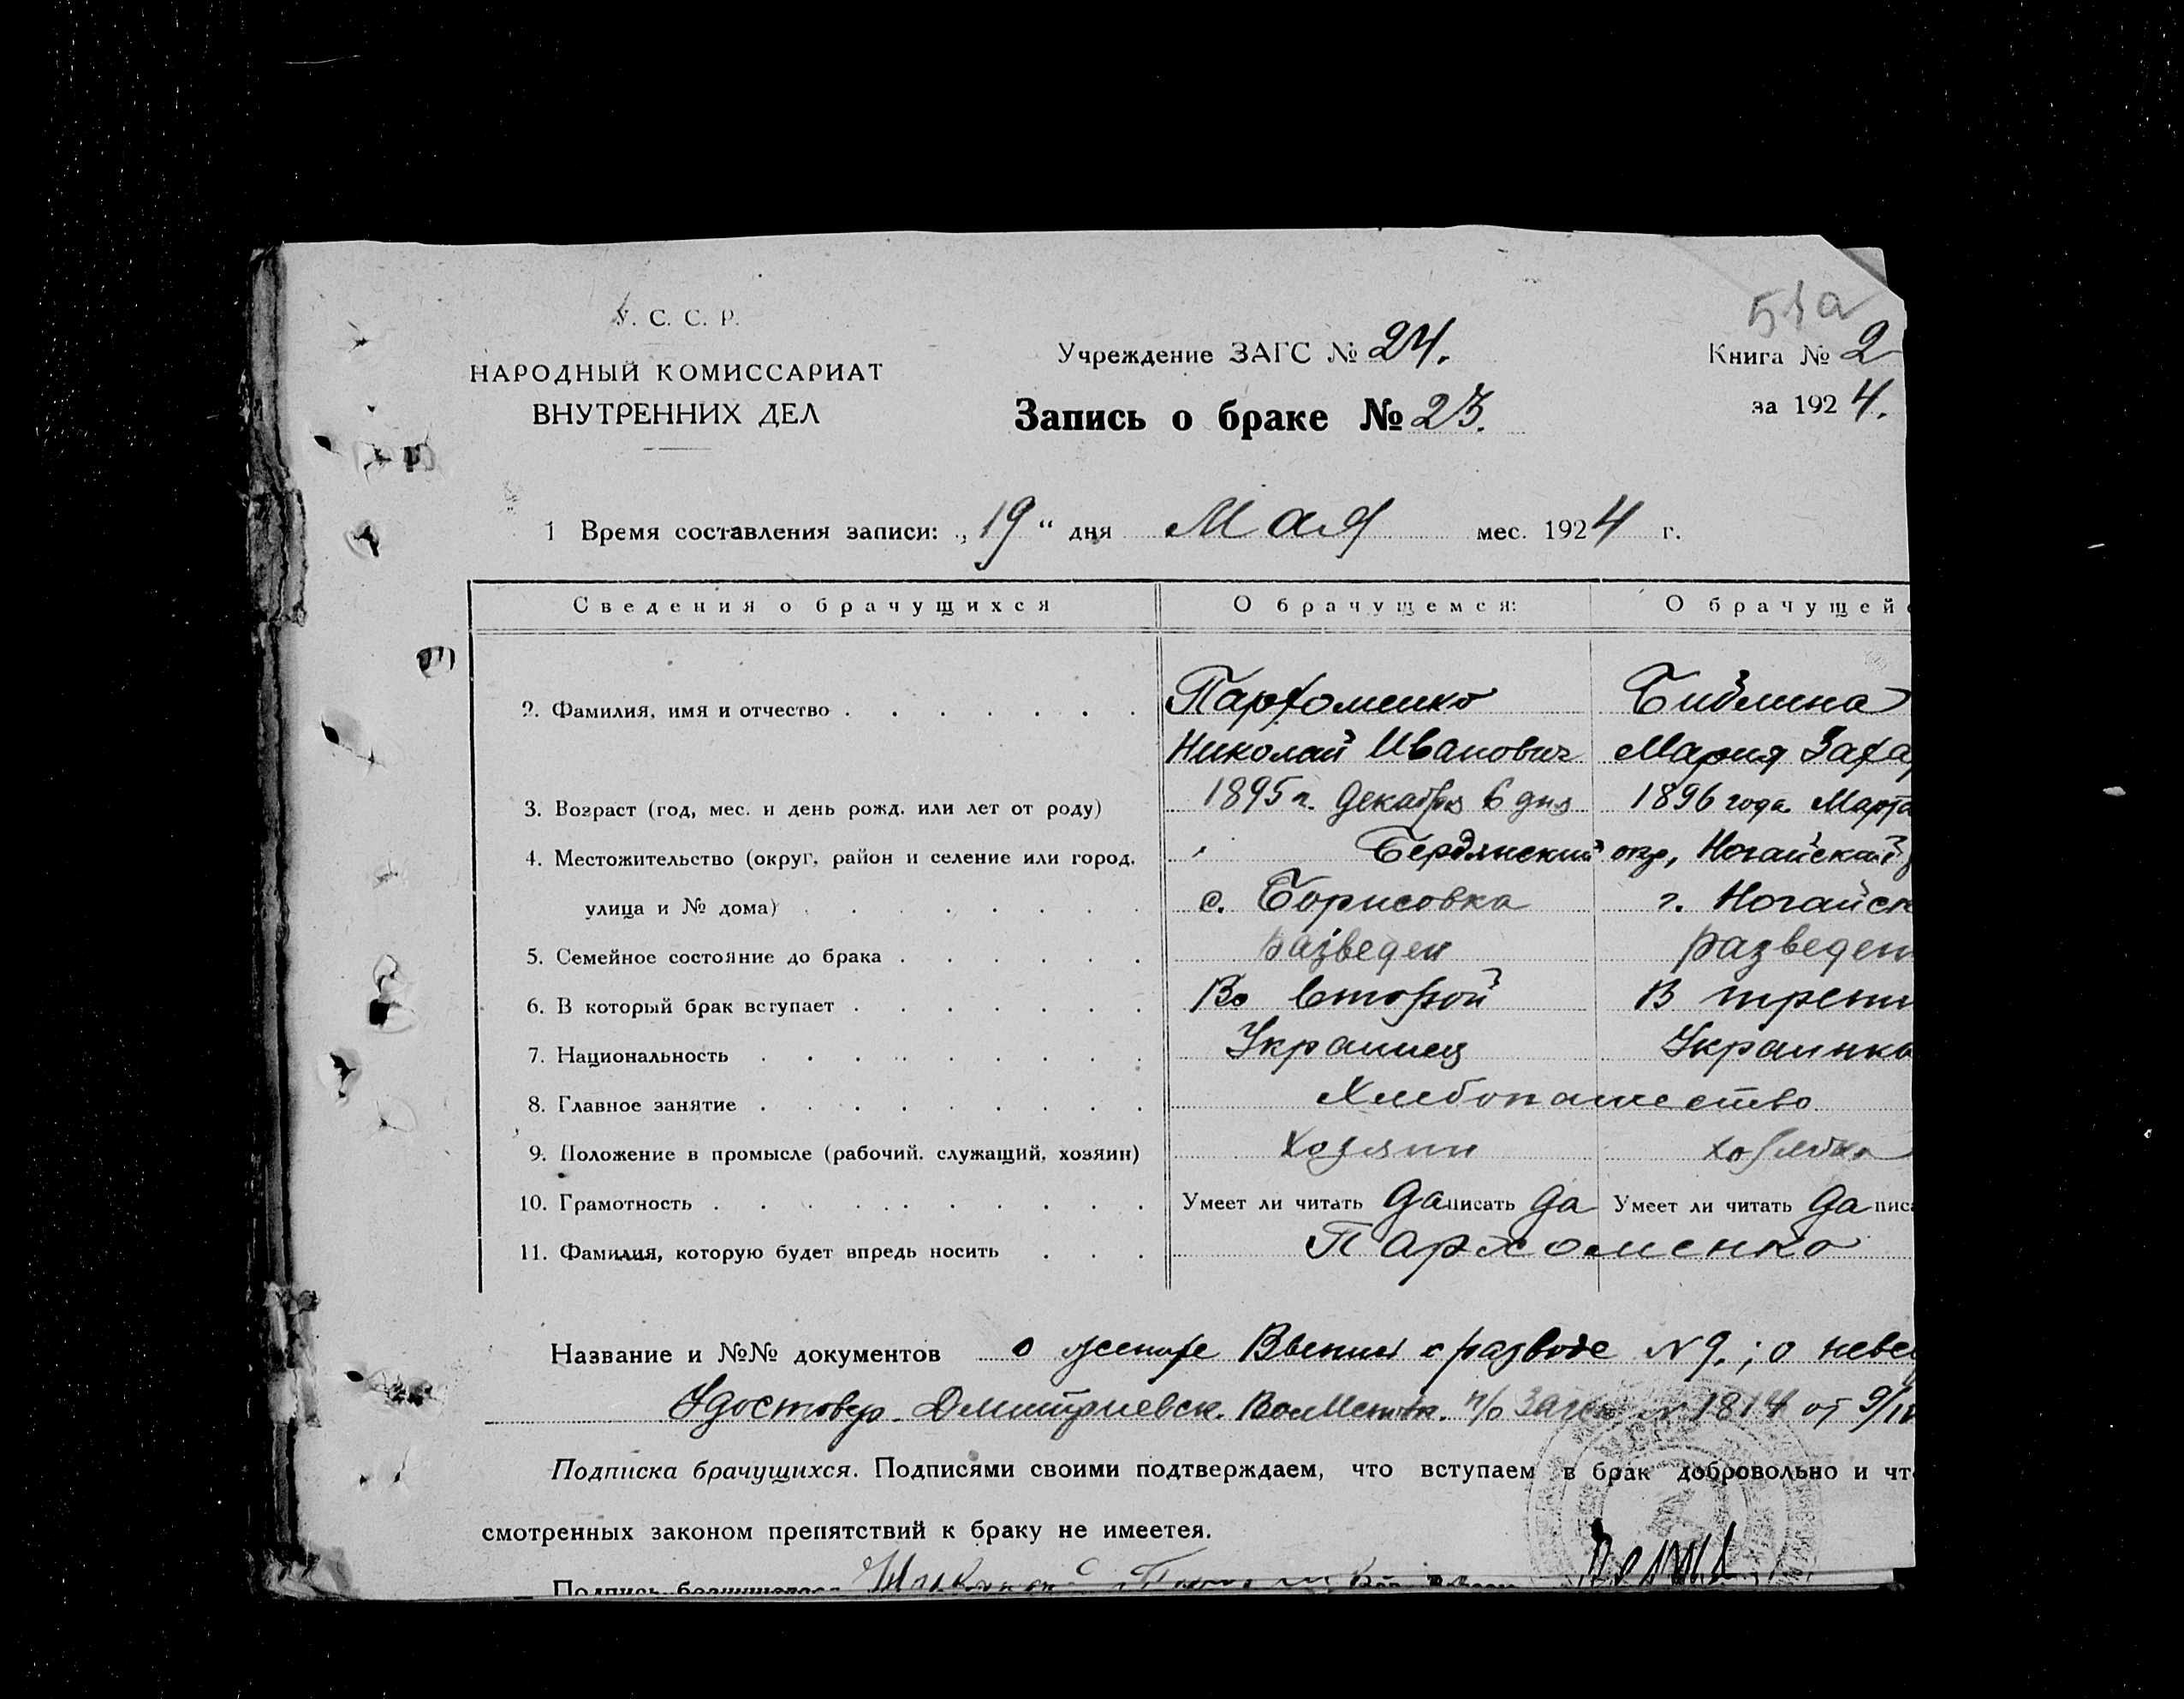 51а
У. С. С. Р.
НАРОДНЫЙ КОМИССАРИАТ
ВНУТРЕННИХ ДЕЛ
Учреждение ЗАГС № 24.
Запись о браке № 23.
Книга № 2
за 1924.
1 Время составления записи: „19“ дня Мая мес. 1924 г.
Сведения о брачущихся О брачущемся: О брачущейс
2. Фамилия, имя и отчество Пархоменко Бидлина
Николай Иванович Мария Захар
3. Возраст (год, мес. и день рожд. или лет от роду) 1895 г. Декабря 6 дня 1896 года Марта
4. Местожительство (округ, район и селение или город, Бердянский окр, Ногайский
улица и № дома) с. Борисовка г. Ногайск
5. Семейное состояние до брака разведен разведен
6. В который брак вступает Во второй В трети
7. Национальность Украинец Украинка
8. Главное занятие Хлебопашество
9. Положение в промысле (рабочий, служащий, хозяин) хозяин хозяйка
10. Грамотность Умеет ли читать да писать да Умеет ли читать да писа
11. Фамилия, которую будет впредь носить Пархоменко
Название и №№ документов о женихе о разводе №9.; о неве
Удостовер. Дмитриевск. п/о Загса № 1814 от 9/IV
Подписка брачущихся. Подписями своими подтверждаем, что вступаем в брак добровольно и чт
смотренных законом препятствий к браку не имеется.
Подпись Николай